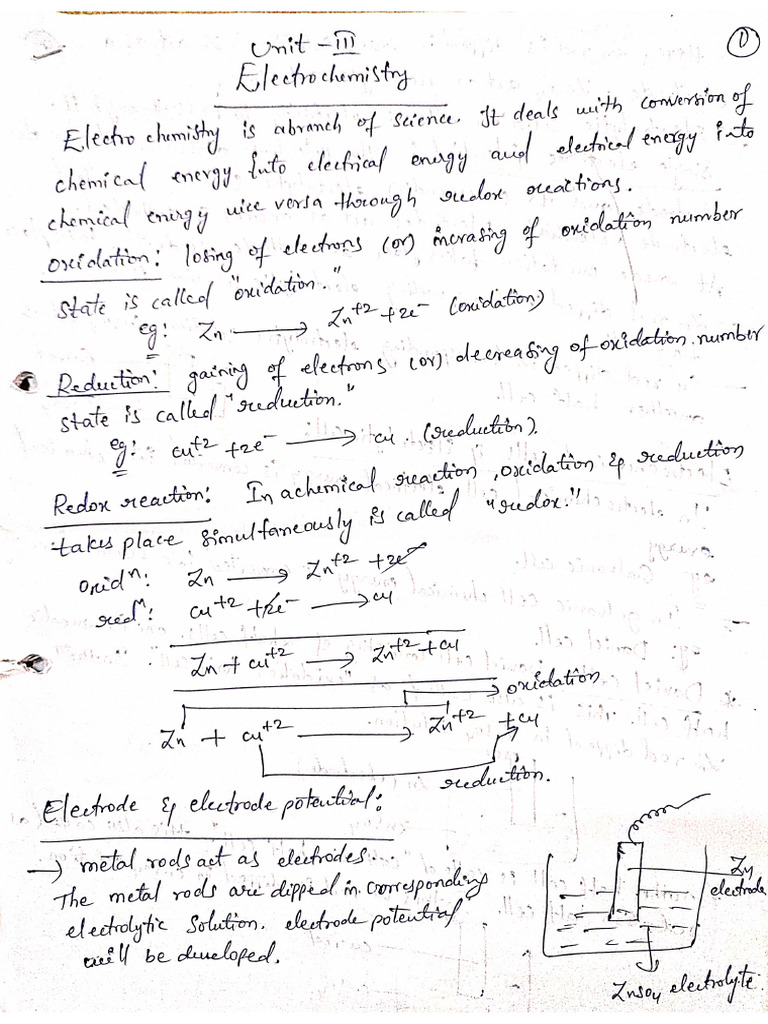 ①
Unit - III
Electrochemistry
Electro chemistry is abranch of science. It deals with conversion of
chemical energy into electrical energy and electrical energy into
chemical energy vice versa through redox reactions.
oxidation: losing of electrons (or) incrasing of oxidation number
state is called "oxidation."
eg: Zn ⟶ Zn⁺² + 2e⁻ (oxidation)
Reduction: gaining of electrons (or) decreasing of oxidation number
state is called "reduction."
eg: cu⁺² + 2e⁻ ⟶ cu. (reduction).
Redox reaction: In achemical reaction, oxidation & reduction
takes place simultaneously is called "redox."
oxidⁿ: Zn ⟶ Zn⁺² + 2e⁻
redⁿ: cu⁺² + 2e⁻ ⟶ cu
Zn + cu⁺² ⟶ Zn⁺² + cu
oxidation
Zn + cu⁺² ⟶ Zn⁺² + cu
reduction.
Electrode & electrode potential:
→ metal rods act as electrodes.
The metal rods are dipped in corresponding
electrolytic solution. electrode potential
will be developed.
Zn
electrode
Znso₄ electrolyte.